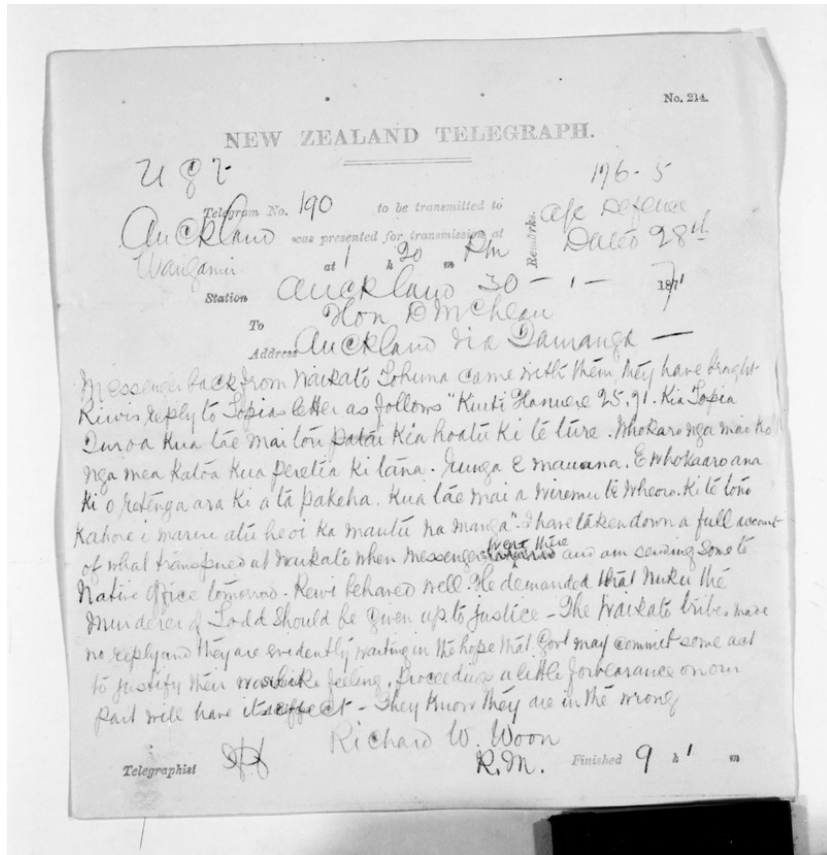 No. 214.
NEW ZEALAND TELEGRAPH.
U G T 176-5
Telegram No. 190 to be transmitted to
Remarks.
Defence
Auckland was presented for transmission at
Dated 28th
Wanganui at 1 h 20 m Pm
Station Auckland 30 - 1 - 1871
To Hon D McLean
Address Auckland via Tauranga —
Messenger back from Waikato Tohuma came with them they have brought
Rewis reply to Topias letter as follows "Kuiti Hanuere 25.71. Kia Topia
Turoa kua tae mai tou patai Kia hoatu ki te ture. Whokaro nga mai ko
nga mea katoa kua peretia ki tana. E whokaaro ana
ki o retenga ara ki a ta pakeha. Kua tae mai a Wiremu te Wheoro. Ki te tono
Kahore i mariu atu heoi ka mautu na manga". I have taken down a full account
of what transpired at Waikato when messengers went there and am sending Sons to
Native Office tomorrow. Rewi behaved well. He demanded that Nuku the
Murderer of Todd should be given up to justice - The Waikato tribes made
no reply and they are evidently waiting in the hope that Govt may commit some act
to justify their warlike feeling. Proceedings a little forbearance on our
part will have its effect - They know they are in the wrong
Richard W. Woon
R.M.
Telegraphist Finished 9 h 1 m